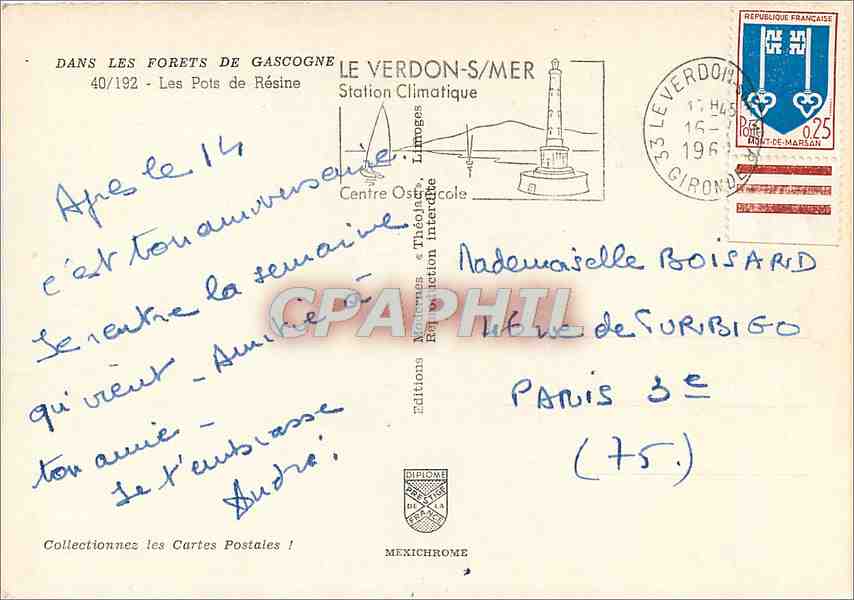 DANS LES FORETS DE GASCOGNE
40/192 - Les Pots de Résine
LE VERDON-S/MER
Station Climatique
Centre Ostréicole
33 LE VERDON-S-MER
16-
196
GIRONDE
REPUBLIQUE FRANÇAISE
Postes 0.25
MONT-DE-MARSAN
Après le 14
c'est ton anniversaire.
Je rentre la semaine
qui vient - Amitié à
ton amie -
Je t'embrasse
André!
Editions Modernes « Théojac » Limoges
Reproduction interdite
Mademoiselle BOISARD
46 rue de TURBIGO
PARIS 3e
(75.)
CPAPHIL
DIPLOME
PRESTIGE
DE LA
FRANCE
MEXICHROME
Collectionnez les Cartes Postales !